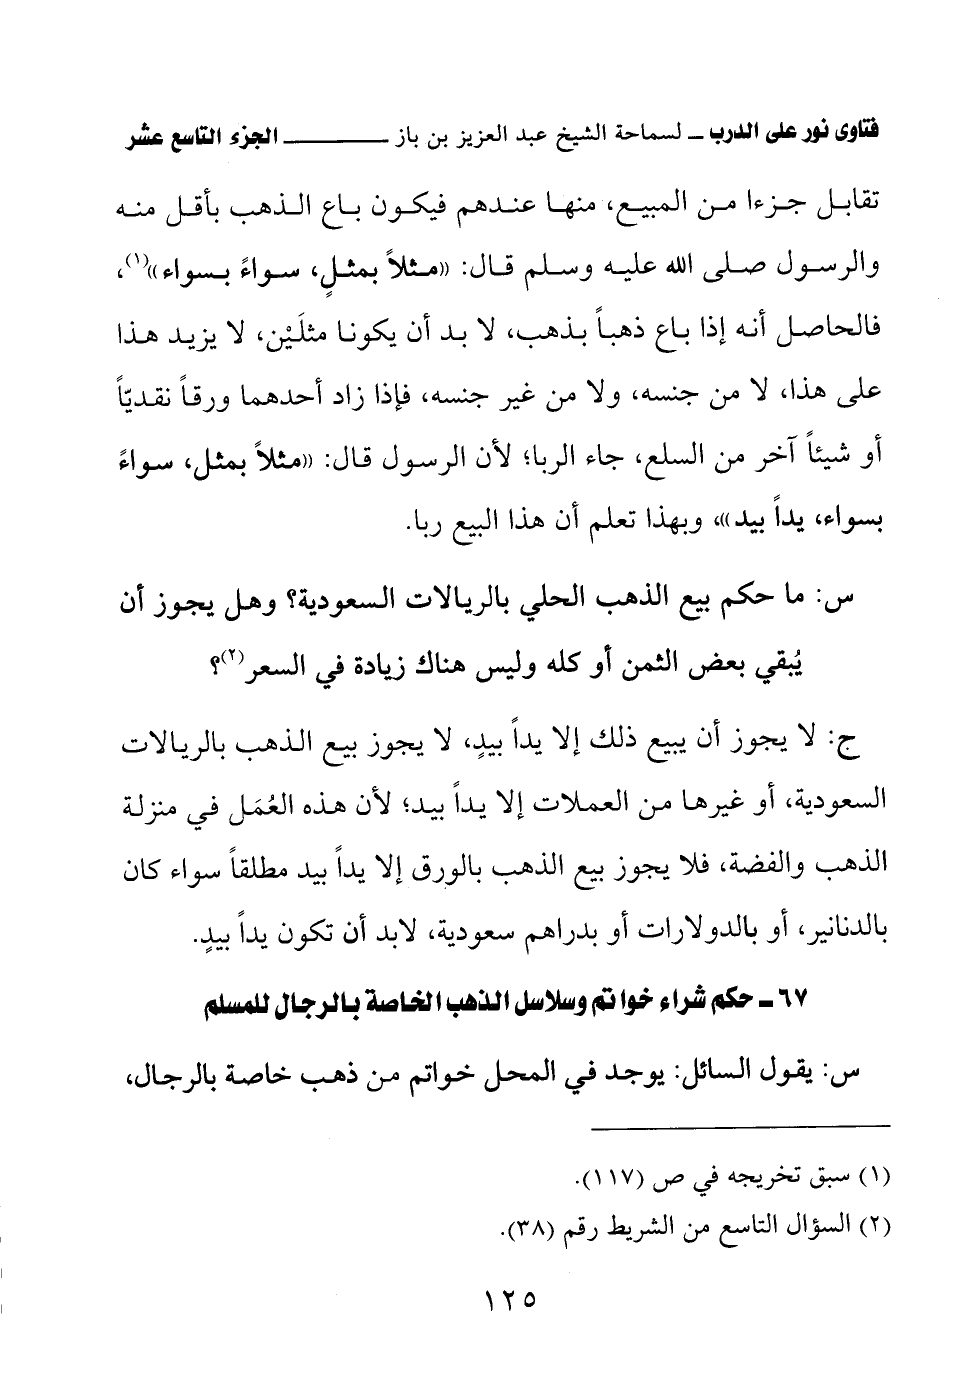 فتاوى نور على الدرب – لسماحة الشيخ عبد العزيز بن باز ــــــــــــ الجزء التاسع عشر
تقابل جزءا من المبيع، منها عندهم فيكون باع الذهب بأقل منه
والرسول صلى الله عليه وسلم قال: «مثلاً بمثلٍ، سواءً بسواء»(١)،
فالحاصل أنه إذا باع ذهباً بذهب، لا بد أن يكونا مثلَيْن، لا يزيد هذا
على هذا، لا من جنسه، ولا من غير جنسه، فإذا زاد أحدهما ورقاً نقديّاً
أو شيئاً آخر من السلع، جاء الربا؛ لأن الرسول قال: «مثلاً بمثل، سواءً
بسواء، يداً بيد»، وبهذا تعلم أن هذا البيع ربا.
س: ما حكم بيع الذهب الحلي بالريالات السعودية؟ وهل يجوز أن
يُبقي بعض الثمن أو كله وليس هناك زيادة في السعر(٢)؟
ج: لا يجوز أن يبيع ذلك إلا يداً بيدٍ، لا يجوز بيع الذهب بالريالات
السعودية، أو غيرها من العملات إلا يداً بيد؛ لأن هذه العُمَل في منزلة
الذهب والفضة، فلا يجوز بيع الذهب بالورق إلا يداً بيد مطلقاً سواء كان
بالدنانير، أو بالدولارات أو بدراهم سعودية، لابد أن تكون يداً بيدٍ.
٦٧ – حكم شراء خواتم وسلاسل الذهب الخاصة بالرجال للمسلم
س: يقول السائل: يوجد في المحل خواتم من ذهب خاصة بالرجال،
(١) سبق تخريجه في ص (١١٧).
(٢) السؤال التاسع من الشريط رقم (٣٨).
١٢٥